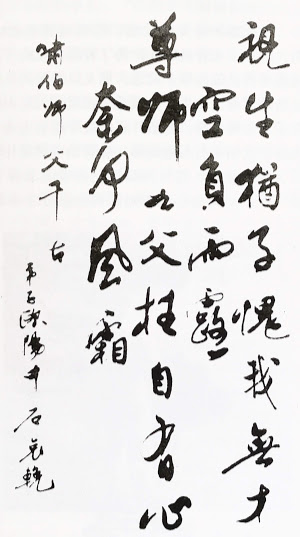 視生猶子愧我無才
空負雨露
尊師如父枉自有心
奈何風霜
嘯伯師父千古
弟子歐陽中石哀輓